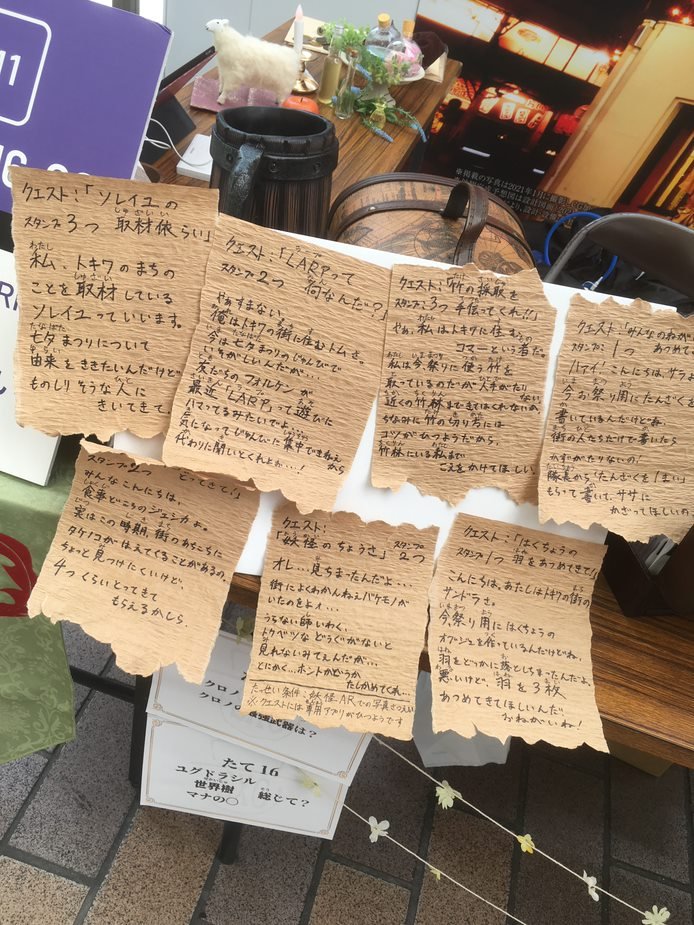 クエスト:「ソレイユの
スタンプ3つ 取材依らい」
私、トキワのまちの
ことを取材している
ソレイユっていいます。
七夕まつりについて
由来をききたいんだけど
ものしりそうな人に
きいてきて
クエスト:「LARPって
スタンプ2つ 何なんだ?」
やぁすまない、
俺はトキワの街に住むトムさ。
今は七夕まつりのじゅんびで
いそがしいんだが…
友だちのフォルケンが
最近"LARP"って遊びに
ハマってるみたいでよ、
気になってじゅんびに集中できねえから
代わりに聞いてくれよぉ…!
クエスト:「竹の採取を
スタンプ:3つ 手伝ってくれ!!」
やぁ、私はトキワに住む
コマーという者だ。
私は今祭りに使う竹を
取っているのだが人手がたりない
近くの竹林まできてはくれないか
ちなみに竹の切り方には
コツがひつようだから、
竹林にいる私まで
こえをかけてほしい
クエスト:「みんなのねが
スタンプ:1つ あつめて
ハァイ!こんにちは、サラよ
今お祭り用にたんざくを
書いているんだけどね、
街の人たちだけで書いたら
かずがたりないの!
隊長から「たんざくを1まい」
もらって書いて、ササに
かざってほしいの
スタンプ2つ とってきて!」
みんなこんにちは、
食事どころのジェシカよ。
実はこの時期、街のあちこちに
タケノコがはえてくることがあるの。
ちょっと見つけにくいけど、
4つくらいとってきて
もらえるかしら。
クエスト:
「妖怪のちょうさ」 スタンプ2つ
オレ…見ちまったんだよ…
街によくわかんねえバケモノが
いたのをよォ…
うらない師いわく、
トクベツなどうぐがないと
見れないみてぇんだが…
とにかく…ホントかどうか
たしかめてくれ…
たっせい条件:妖怪ARでの写真さつえい
※クエストには専用アプリがひつようです
クエスト:「はくちょうの
スタンプ1つ 羽をあつめてきて!」
こんにちは、あたしはトキワの街の
サンドラさ。
今祭り用にはくちょうの
オブジェを作っているんだけどね、
羽をどっかに落としちまったんだよ
悪いけど、羽を3枚
あつめてきてほしいんだ
おねがいね!
クロノ
クロノの最強武器は?
たて16
ユグドラシル
世界樹
マナの○ 総じて?